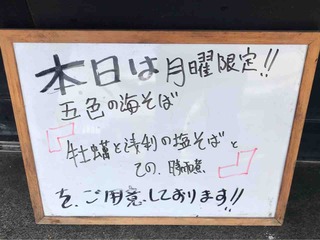 本日は月曜限定!!
五色の海そば
牡蠣と浅利の塩そばと
を、ご用意しております!!